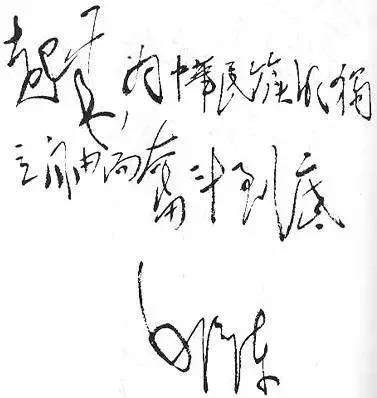 起来,为中華民族的独
立自由而奮斗到底
毛泽东